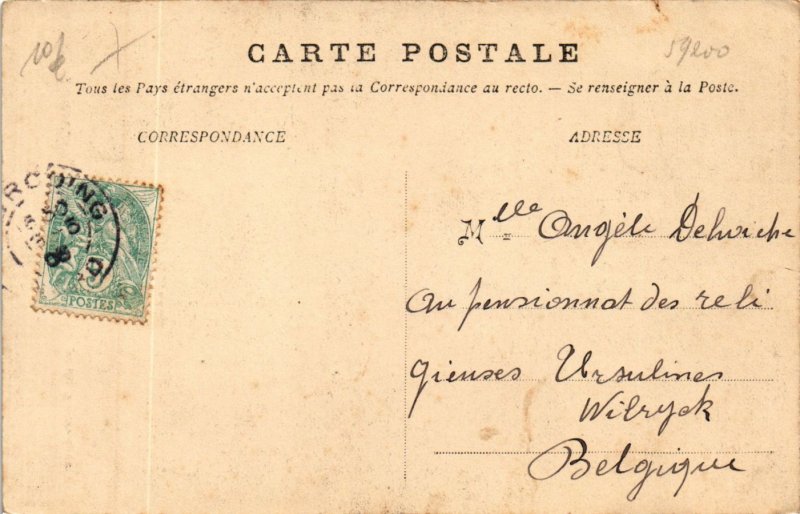 10f
59200
CARTE POSTALE
Tous les Pays étrangers n'acceptent pas la Correspondance au recto. — Se renseigner à la Poste.
CORRESPONDANCE
ADRESSE
POSTES
Mlle Angèle Delwiche
Au pensionnat des reli
gieuses Ursulines
Wilryck
Belgique